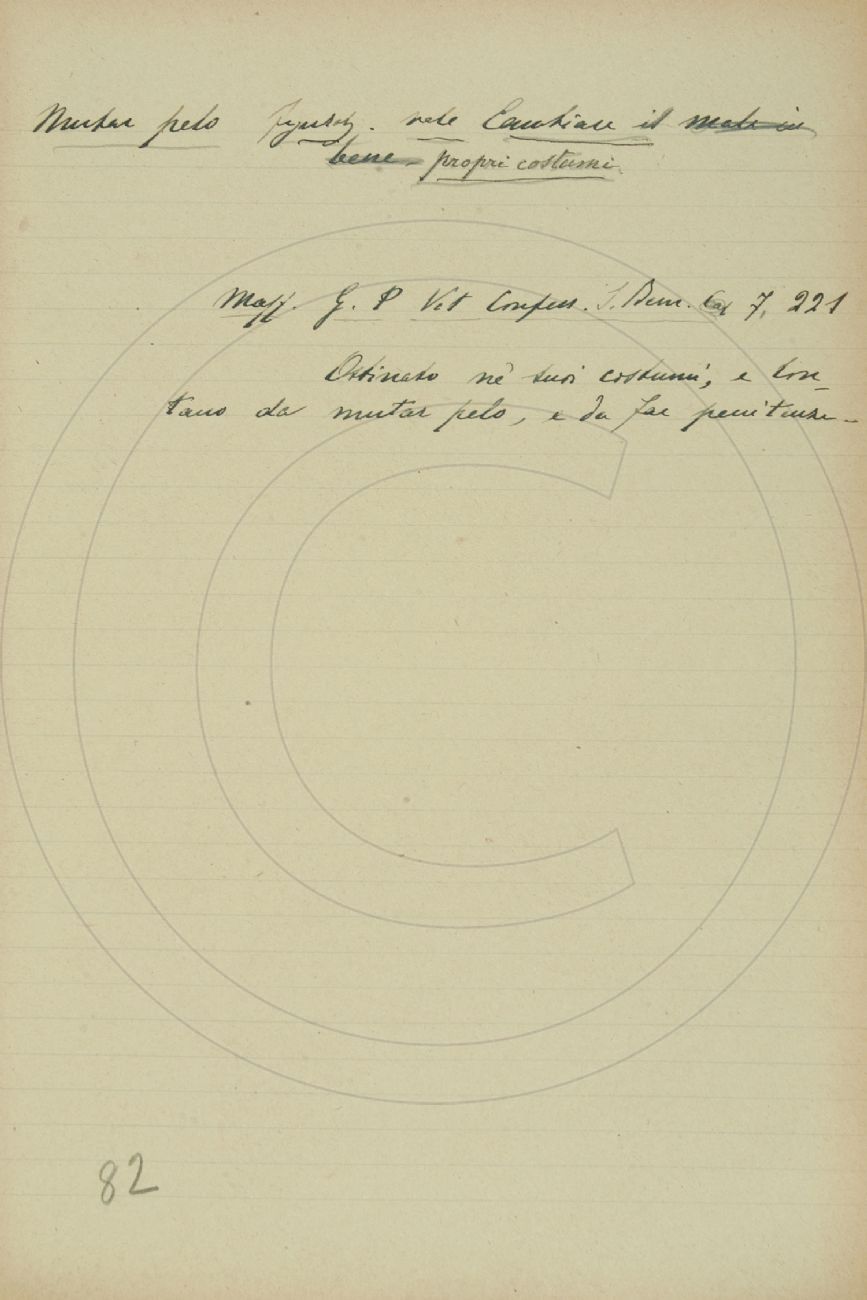 Mutar pelo figurat. vale Cambiare il male in
bene - propri costumi.
Maff. G. P Vit Confess. S. Bern. Cap 7, 221
Ostinato nè suoi costumi, e lon-
tano da mutar pelo, e da far penitenza -
82